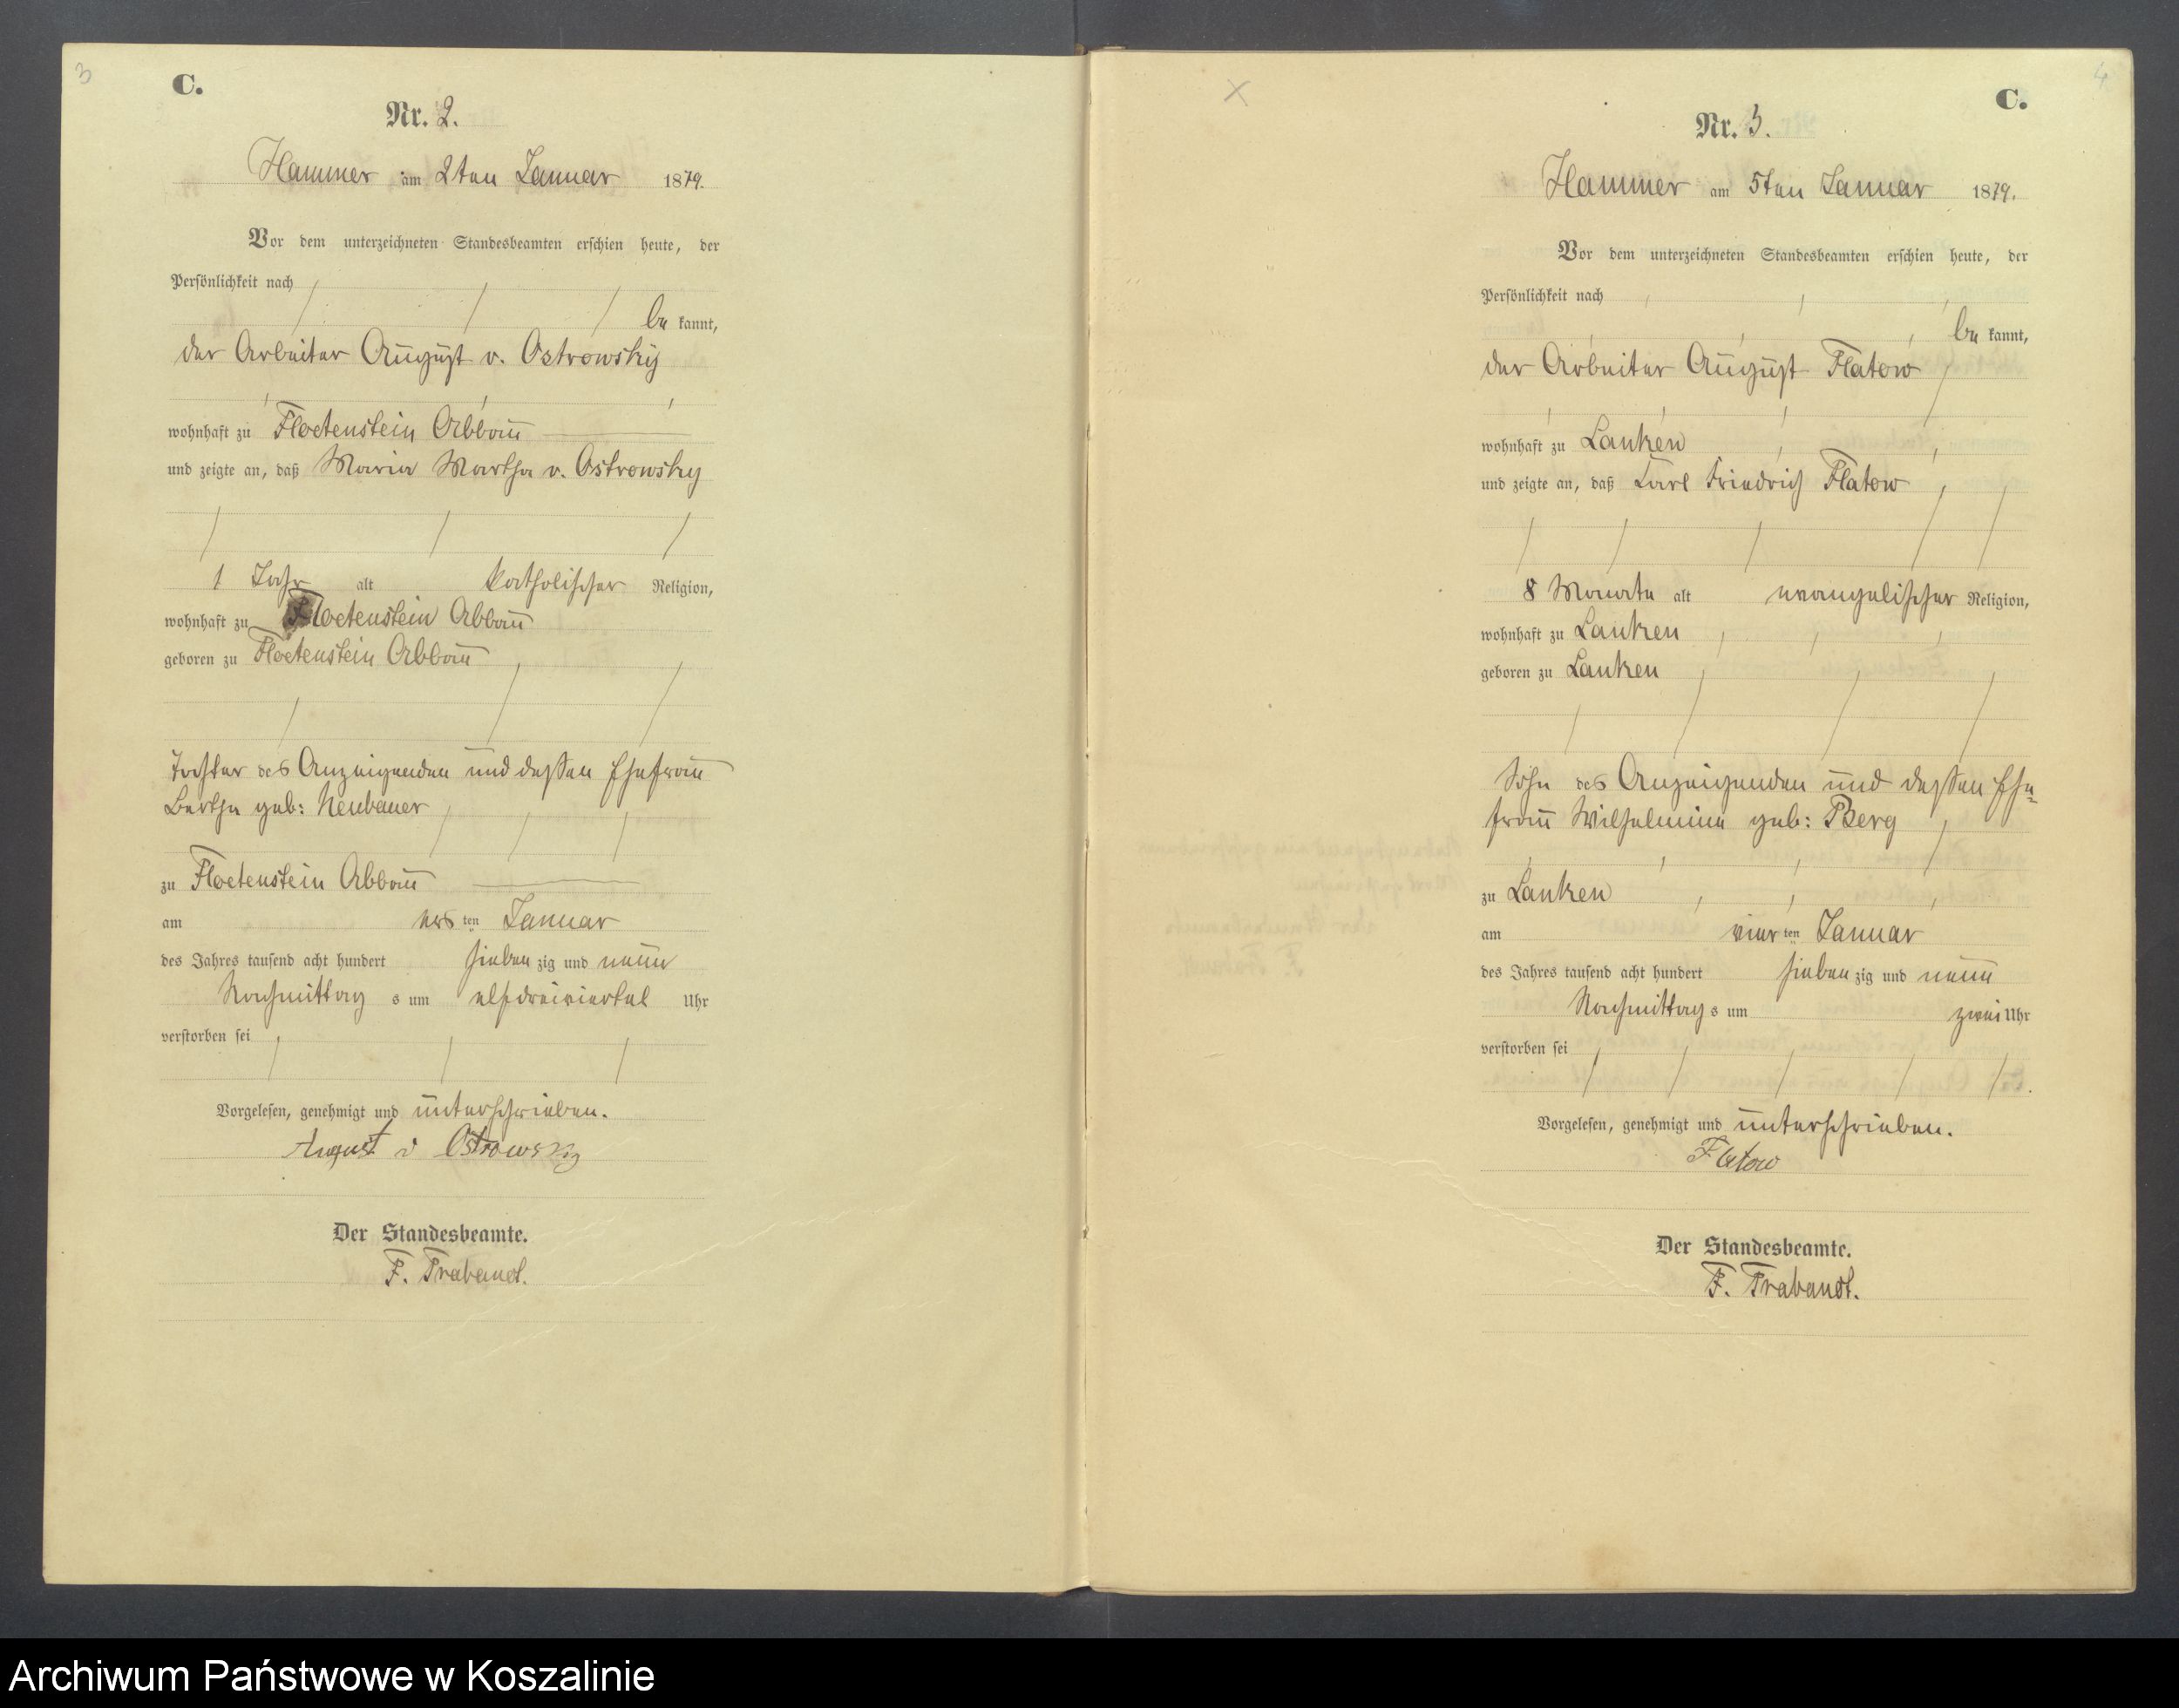 3
C.
Nr. 2.
Hammer am 2ten Januar 1879.
Vor dem unterzeichneten Standesbeamten erschien heute, der
Persönlichkeit nach
be kannt,
der Arbeiter August v. Ostrowsky
wohnhaft zu Floetenstein Abbau
und zeigte an, daß Maria Martha v. Ostrowsky
1 Jahr alt katholischer Religion,
wohnhaft zu Floetenstein Abbau
geboren zu Floetenstein Abbau
Tochter des Anzeigenden und dessen Ehefrau
Bertha geb: Neubauer
zu Floetenstein Abbau
am ersten Januar
des Jahres tausend acht hundert siebenzig und neun
Nachmittag s um elfdreiviertel Uhr
verstorben sei
Vorgelesen, genehmigt und unterschrieben.
August v Ostrowsky
Der Standesbeamte.
F. Trabandt.
4
C.
Nr. 3.
Hammer am 5ten Januar 1879.
Vor dem unterzeichneten Standesbeamten erschien heute, der
Persönlichkeit nach
be kannt,
der Arbeiter August Flatow
wohnhaft zu Lanken
und zeigte an, daß Carl Friedrich Flatow
8 Monate alt evangelischer Religion,
wohnhaft zu Lanken
geboren zu Lanken
Sohn des Anzeigenden und dessen Ehe=
frau Wilhelmine geb: Berg
zu Lanken
am vierten Januar
des Jahres tausend acht hundert siebenzig und neun
Nachmittags um zwei Uhr
verstorben sei
Vorgelesen, genehmigt und unterschrieben.
Flatow
Der Standesbeamte.
F. Trabandt.
Archiwum Państwowe w Koszalinie